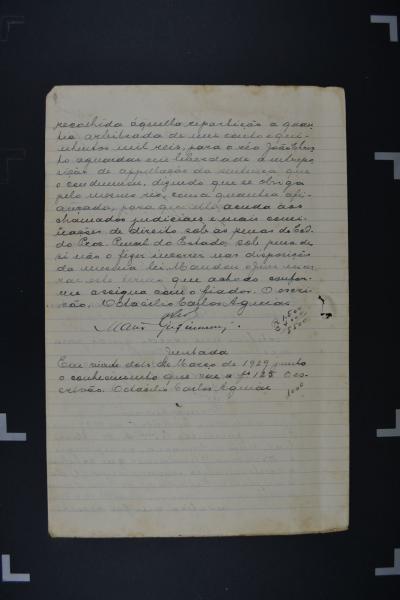 recolhida áquella repartição a quan-
tia arbitrada de um conto e qui-
nhentos mil reis, para o réo João
to aguardar em liberdade a interpo
sição de appellação da sentença que
o condemnou, digo que se obriga
pelo mesmo réo, com a quantia afi-
ançada, para que elle, acuda aos
chamados judiciaes e mais comi-
nações de direito sob as penas do Cod.
do Proc. Penal do Estado, sob pena de
si não o fizer incorrer nas disposições
da mesma lei. Mandou o Juiz
rar este termo que achado confor-
me assigna com o fiador. O escri-
vão, Octacilio Carlos Aguiar
Juntada
Em vinte dois de Março de 1929 junto
o conhecimento que vae a fs 125 O es-
crivão. Octacilio Carlos Aguiar
1000